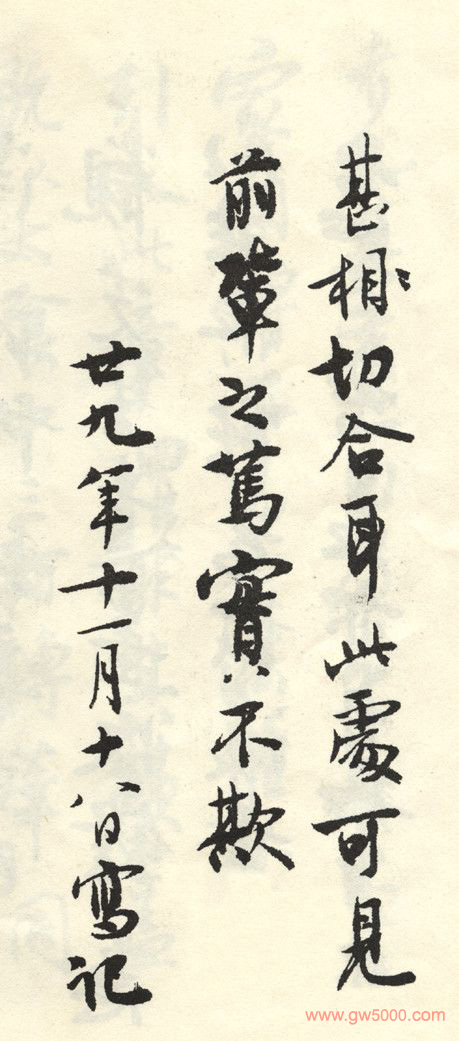 甚相切合耳此處可見
前輩之篤實不欺
廿九年十一月十八日寫記
www.gw5000.com